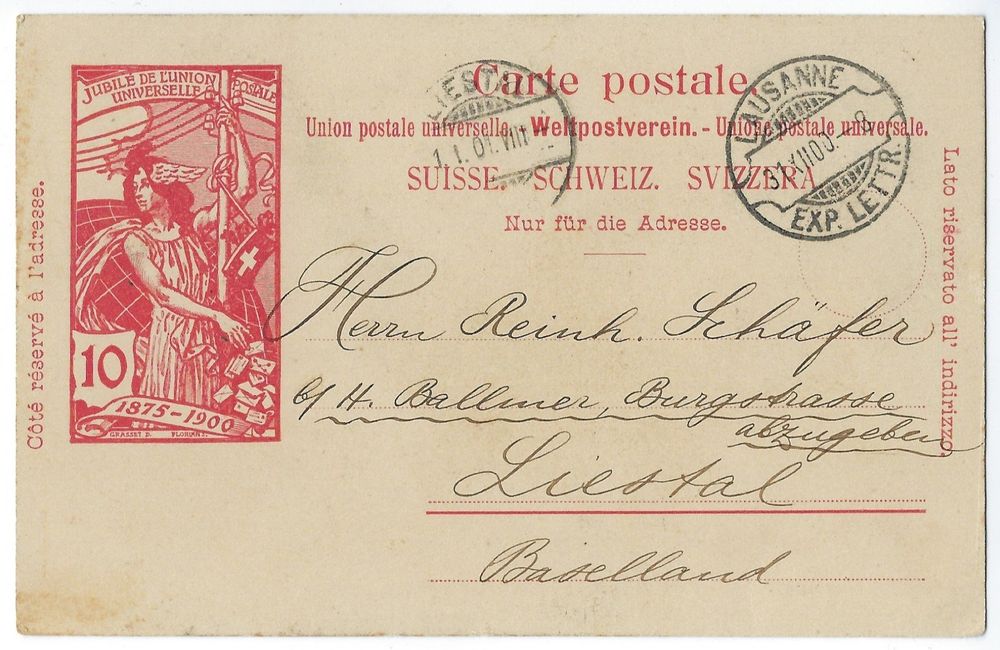 JUBILÉ DE L'UNION
UNIVERSELLE POSTALE
10
1875-1900
GRASSET D. FLORIAN S.
Côté réservé à l'adresse.
Carte postale.
Union postale universelle. - Weltpostverein. - Unione postale universale.
SUISSE. SCHWEIZ. SVIZZERA.
Nur für die Adresse.
Lato riservato all' indirizzo.
LIESTAL
1.I.01.VIII
LAUSANNE
31.XII00.-8
EXP. LETTR.
Herrn Reinh. Schäfer
b/ H. Ballmer, Burgstrasse
abzugeben
Liestal
Baselland